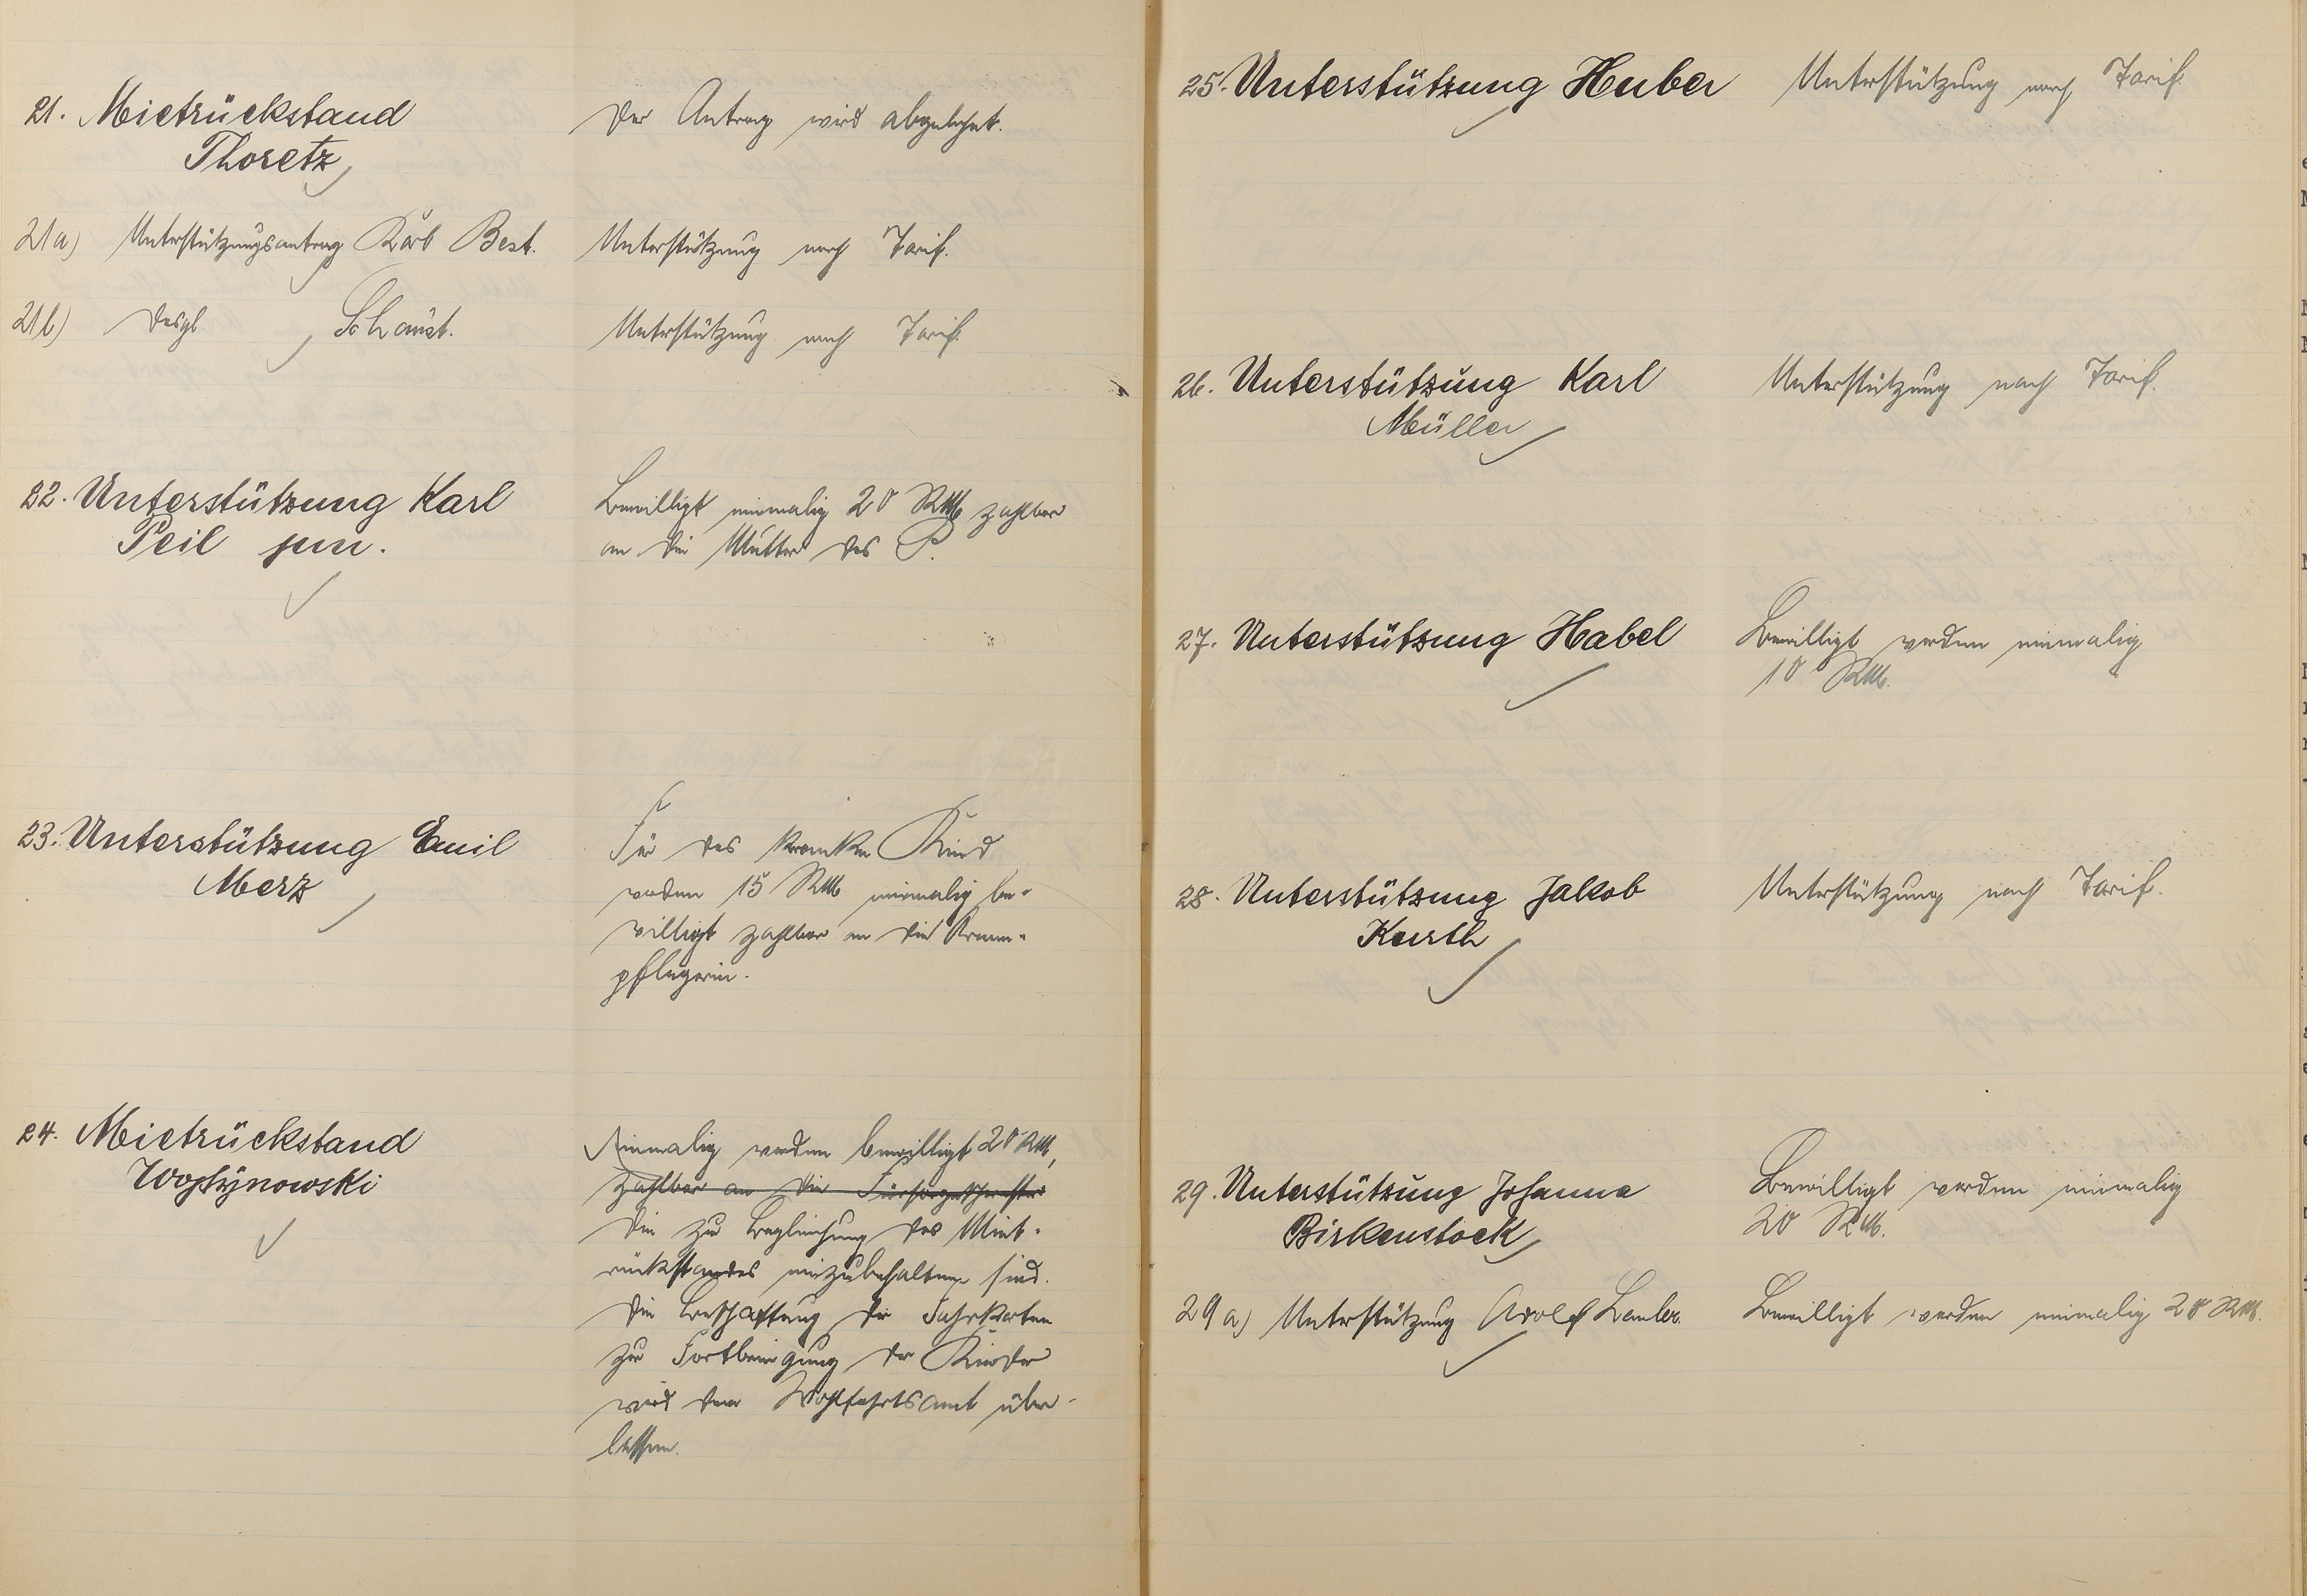 21. Mietrückstand
Thoretz
Der Antrag wird abgelehnt.
21a) Unterstützungsantrag Karl Best.
Unterstützung nach Tarif.
21b) desgl Schaust.
Unterstützung nach Tarif.
22. Unterstützung Karl
Peil jun.
Bewilligt einmalig 20 RM zahlbar
an die Mutter des P.
23. Unterstützung Emil
Merz
Für das kranke Kind
werden 15 RM einmalig be-
willigt zahlbar an die Kranken-
pflegerin.
24. Mietrückstand
Einmalig werden bewilligt 20 RM,
zahlbar an die Fürsorgeschwester
die zur Begleichung des Miet-
rückstandes einzubehalten sind.
Die Beschaffung der Fahrkarten
zur Fortbringung der Kinder
wird dem Wohlfahrtsamt über-
lassen.
25. Unterstützung Huber
Unterstützung nach Tarif.
26. Unterstützung Karl
Müller
Unterstützung nach Tarif.
27. Unterstützung Habel
Bewilligt werden einmalig
10 RM.
28. Unterstützung Jakob
Kurth
Unterstützung nach Tarif.
29. Unterstützung Johanna
Birkenstock
Bewilligt werden einmalig
20 RM.
29a) Unterstützung Adolf Lauber.
Bewilligt werden einmalig 20 RM.